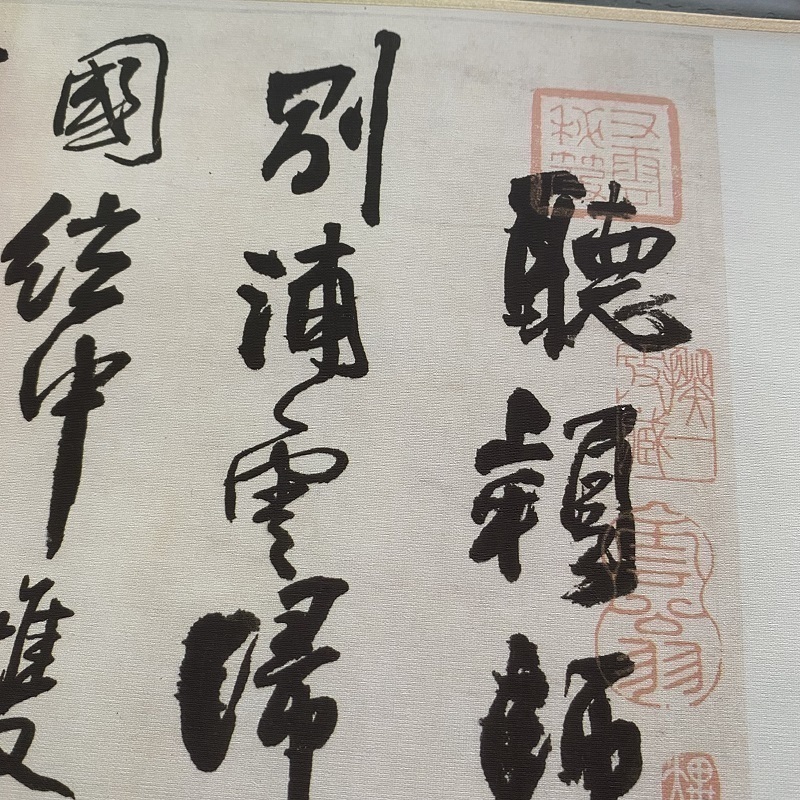 聽穎師
別浦雲歸
國絃中雙